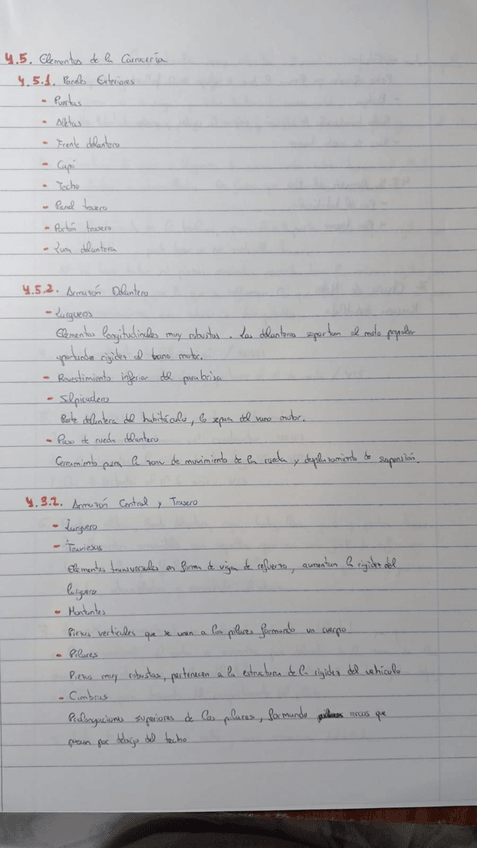 4.5. Elementos de la Carrocería
4.5.1. Paneles Exteriores
- Puertas
- Aletas
- Frente delantero
- Capó
- Techo
- Panel trasero
- Portón trasero
- Luna delantera
4.5.2. Armazón Delantero
- Largueros
Elementos longitudinales muy robustos. Los delanteros soportan el moto propulsor
aportando rigidez al vano motor.
- Revestimiento inferior del parabrisa
- Salpicadero
Parte delantera del habitáculo, lo separa del vano motor.
- Paso de rueda delantero
Cerramiento para la zona de movimiento de la rueda y desplazamiento de suspensión.
4.3.2. Armazón Central y Trasero
- Larguero
- Traviesas
Elementos transversales en forma de viga de refuerzo, aumentan la rigidez del
larguero
- Montantes
Piezas verticales que se unen a los pilares formando un cuerpo
- Pilares
Piezas muy robustas, pertenecen a la estructura de la rigidez del vehículo
- Cimbras
Prolongaciones superiores de los pilares, formando arcos que
pasan por debajo del techo